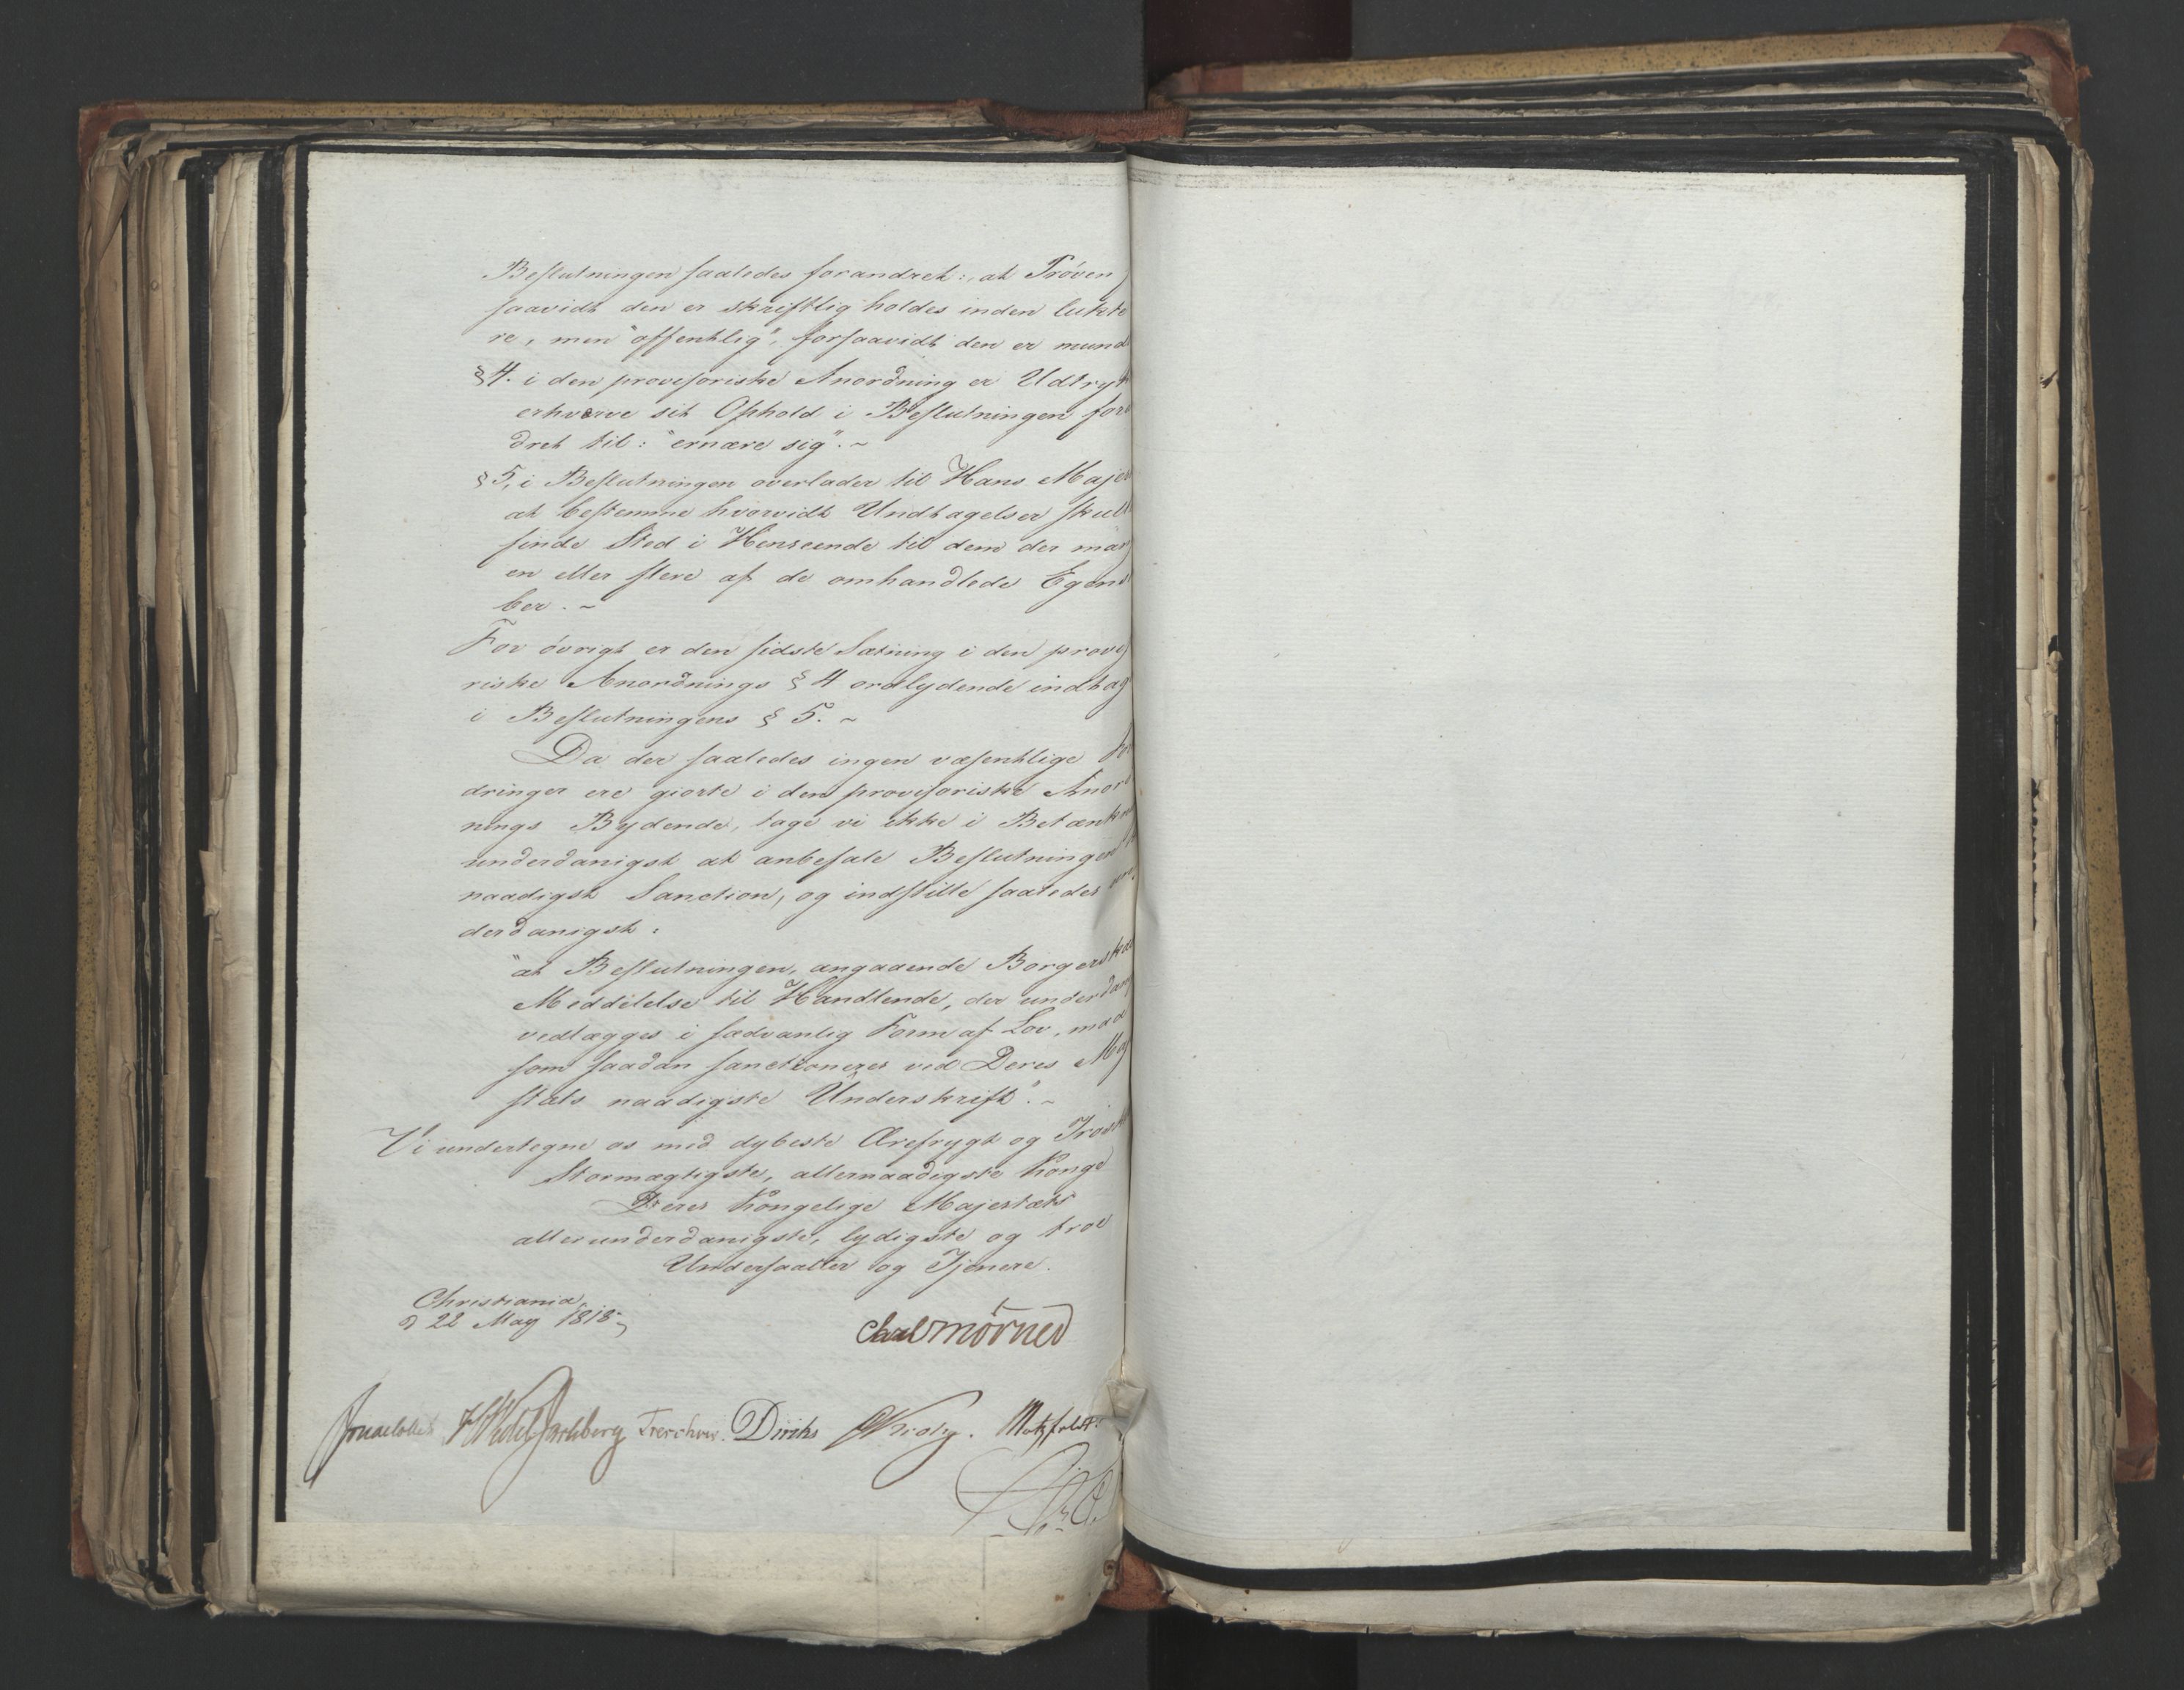 Beslutningen saaledes forandret: at Prøven
saavidt den er skriftlig holdes inden lukte
re, men "offentlig", forsaavidt den er mund
§ 4. i den provisoriske Anordning er Udtryk
erhverve sit Ophold i Beslutningen for
dret til: "ernære sig". ~
§ 5, i Beslutningen overlader til Hans Maje
at bestemme hvorvidt Undtagelser skull
finde Sted i Henseende til dem der man
en eller flere af de omhandlede Egens
ber. ~
For øvrigt er den sidste Sætning i den provi
riske Anordnings § 4 ordlydende indtag
i Beslutningens § 5. ~
Da der saaledes ingen væsentlige For
dringer ere giorte i den provisoriske Anord
nings Bydende, tage vi ikke i Betænkn
underdanigst at anbefale Beslutningen
naadigst Sanction, og indstille saaledes
derdanigst:
"at Beslutningen, angaaende Borgerska
Meddelelse til Handlende, der underdan
vedlægges i sædvanlig Form af Lov, maa
som saadan sanctioneres ved Deres Maj
stæts naadigste Underskrift". ~
Vi undertegne os med dybeste Ærefrygt og Trosk
Stormægtigste, allernaadigste Konge
Deres Kongelige Majestæts
allerunderdanigste, lydigste og troe
Undersaatter og Tjenere.
Christiania
d 22 May 1818
Carl Mörner
HWedel Jarlsberg Treschow. Diriks Krog. Motzfeldt.